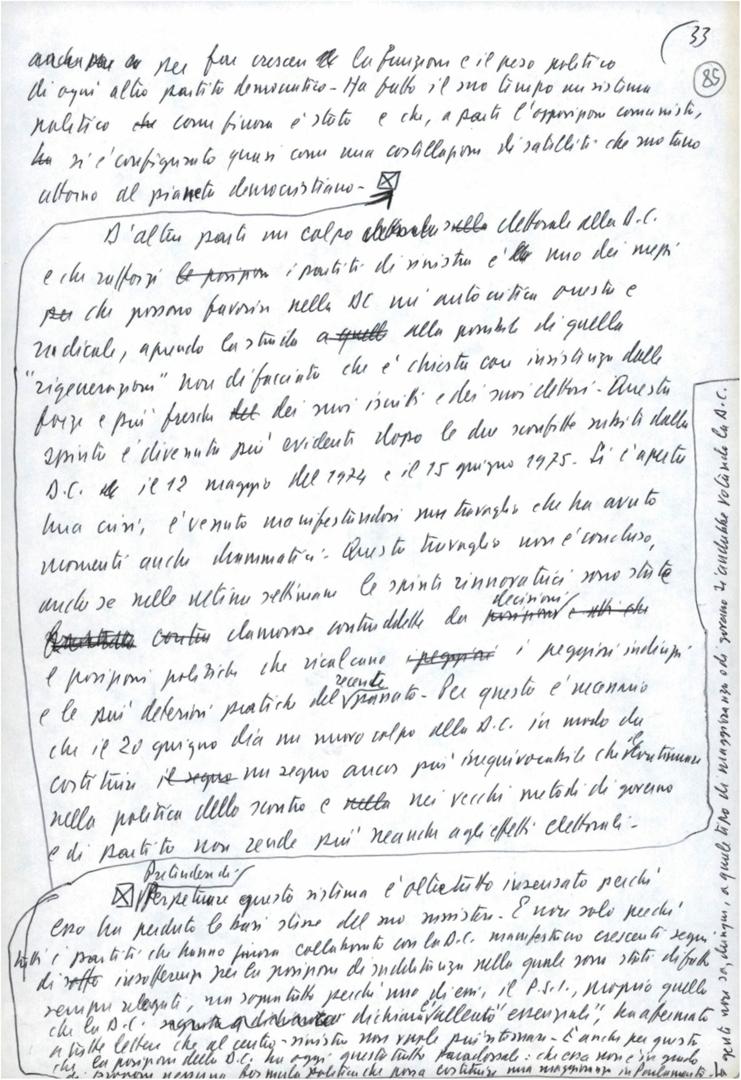 33
85
anche per far crescere la funzione e il peso politico
di ogni altro partito democratico - Ha fatto il suo tempo un sistema
politico che come finora è stato e che, a parte l'opposizione comunista,
ha si è configurato quasi come una costellazione di satelliti che ruotano
attorno al pianeta democristiano -
D'altra parte un colpo elettorale alla D.C.
e che rafforzi le posizioni i partiti di sinistra è uno dei mezzi
per che possono favorire nella DC un'autocritica onesta e
radicale, aprendo la strada a quell alla possibile di quella
"rigenerazione" non di facciata che è chiesta con insistenza dalle
forze e più fresche del dei suoi iscritti e dei suoi elettori - Questa
spinta è divenuta più evidente dopo le due sconfitte subite dalla
D.C. il 12 maggio del 1974 e il 15 giugno 1975 - Si è aperta
una crisi, è venuto manifestandosi un travaglio che ha avuto
momenti anche drammatici - Questo travaglio non è concluso,
anche se nelle ultime settimane le spinte rinnovatrici sono state
contra clamorose contraddette da posizioni e atti che decisioni
e posizioni politiche che ricalcano i peggiori i peggiori indirizzi
e le più deteriori pratiche del recente passato - Per questo è necessario
che il 20 giugno dia un nuovo colpo alla D.C. in modo da
costituire il segno un segno ancor più inequivocabile che il continuare
nella politica dello scontro e nella nei vecchi metodi di governo
e di partito non rende più neanche agli effetti elettorali -
Pretendere di
Perpetuare questo sistema è oltretutto insensato perché
esso ha perduto le basi stesse del suo sussistere - E non solo perché
tutti i partiti che hanno finora collaborato con la D.C. manifestano crescenti segni
di insofferenza per la posizione di sudditanza nella quale sono stati di fatto
sempre relegati, ma soprattutto perché uno di essi, il P.S.I., proprio quello
che la D.C. dichiara "alleato essenziale", ha affermato
a tutte lettere che al centro-sinistra non vuole più ritornare - È anche per questo
che la posizione della D.C. ha oggi questo tutto paradossale: che essa non è in grado
di proporre nessuna formula politica che possa costituire una maggioranza in Parlamento -
La gente non sa, dunque, a quale tipo di maggioranza e di governo si andrebbe votando la D.C.